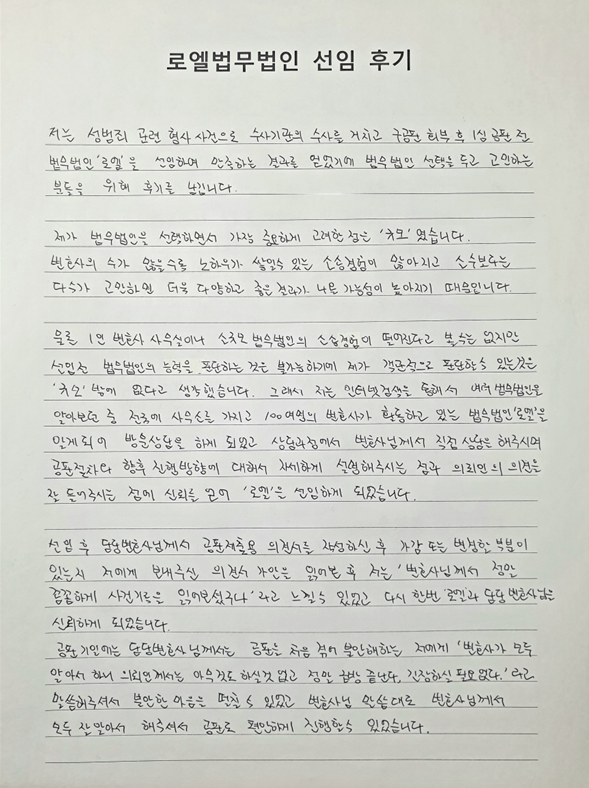 로엘법무법인 선임 후기
저는 성범죄 관련 형사 사건으로 수사기관의 수사를 거치고 구공판 회부 후 1심 공판 전
법무법인 '로엘'을 선임하여 만족하는 결과를 얻었기에 법무법인 선택을 두고 고민하는
분들을 위해 후기를 남깁니다.
제가 법무법인을 선택하면서 가장 중요하게 고려한 점은 '규모'였습니다.
변호사의 수가 많을수록 노하우가 쌓일수 있는 소송경험이 많아지고 소수보다는
다수가 고민하면 더욱 다양하고 좋은 결과가 나올 가능성이 높아지기 때문입니다.
물론 1인 변호사 사무실이나 소규모 법무법인의 소송경험이 떨어진다고 볼수는 없지만
선임전 법무법인의 능력을 판단하는 것은 불가능하기에 제가 객관적으로 판단할수 있는것은
'규모' 밖에 없다고 생각했습니다. 그래서 저는 인터넷검색을 통해서 여러 법무법인을
알아보던 중 전국에 사무소를 가지고 100여명의 변호사가 활동하고 있는 법무법인 '로엘'을
알게되어 방문상담을 하게 되었고 상담과정에서 변호사님께서 직접 상담을 해주시며
공판절차와 향후 진행방향에 대해서 자세하게 설명해주시는 점과 의뢰인의 의견을
잘 들어주시는 점에 신뢰를 얻어 '로엘'을 선임하게 되었습니다.
선임 후 담당변호사님께서 공판제출용 의견서를 작성하신 후 가감 또는 변경할 부분이
있는지 저에게 보내주신 의견서 가안을 읽어본 후 저는 '변호사님께서 정말
꼼꼼하게 사건기록을 읽어보셨구나' 라고 느낄수 있었고 다시 한번 '로엘'과 담당 변호사님을
신뢰하게 되었습니다.
공판 기일에는 담당변호사님께서는 공판을 처음 겪어 불안해하는 저에게 '변호사가 모두
알아서 하니 의뢰인께서는 아무것도 하실것 없고 정말 금방 끝난다, 긴장하실 필요없다.' 라고
말씀해주셔서 불안한 마음을 떨칠 수 있었고 변호사님 말씀대로 변호사님께서
모두 잘 알아서 해주셔서 공판을 편안하게 진행할수 있었습니다.